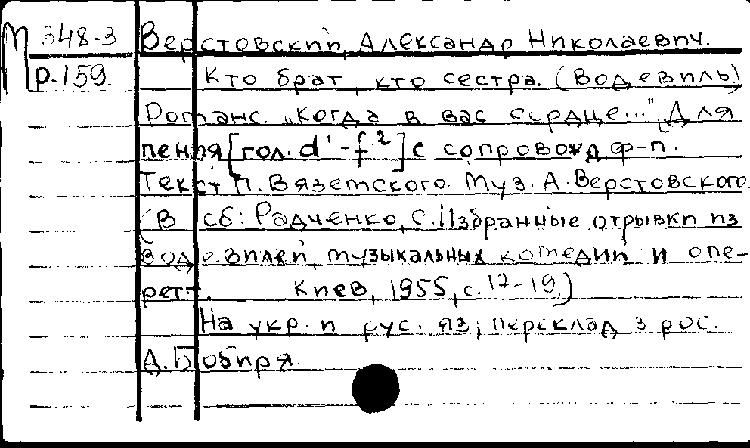 М 348-3 Верстовский, Александр Николаевич.
р-159 Кто брат, кто сестра. (Водевиль)
Романс „Когда в вас сердце..." Для
пения [гол. d¹-f²] с сопровожд ф-п.
Текст П. Вяземского. Муз. А. Верстовского.
(В сб: Радченко, С. Избранные отрывки из
водевилей, музыкальных комедий и опе-
ретт. Киев, 1955, с. 17-19.)
На укр. и рус. яз; переклад з рос.
Д. Бобиря